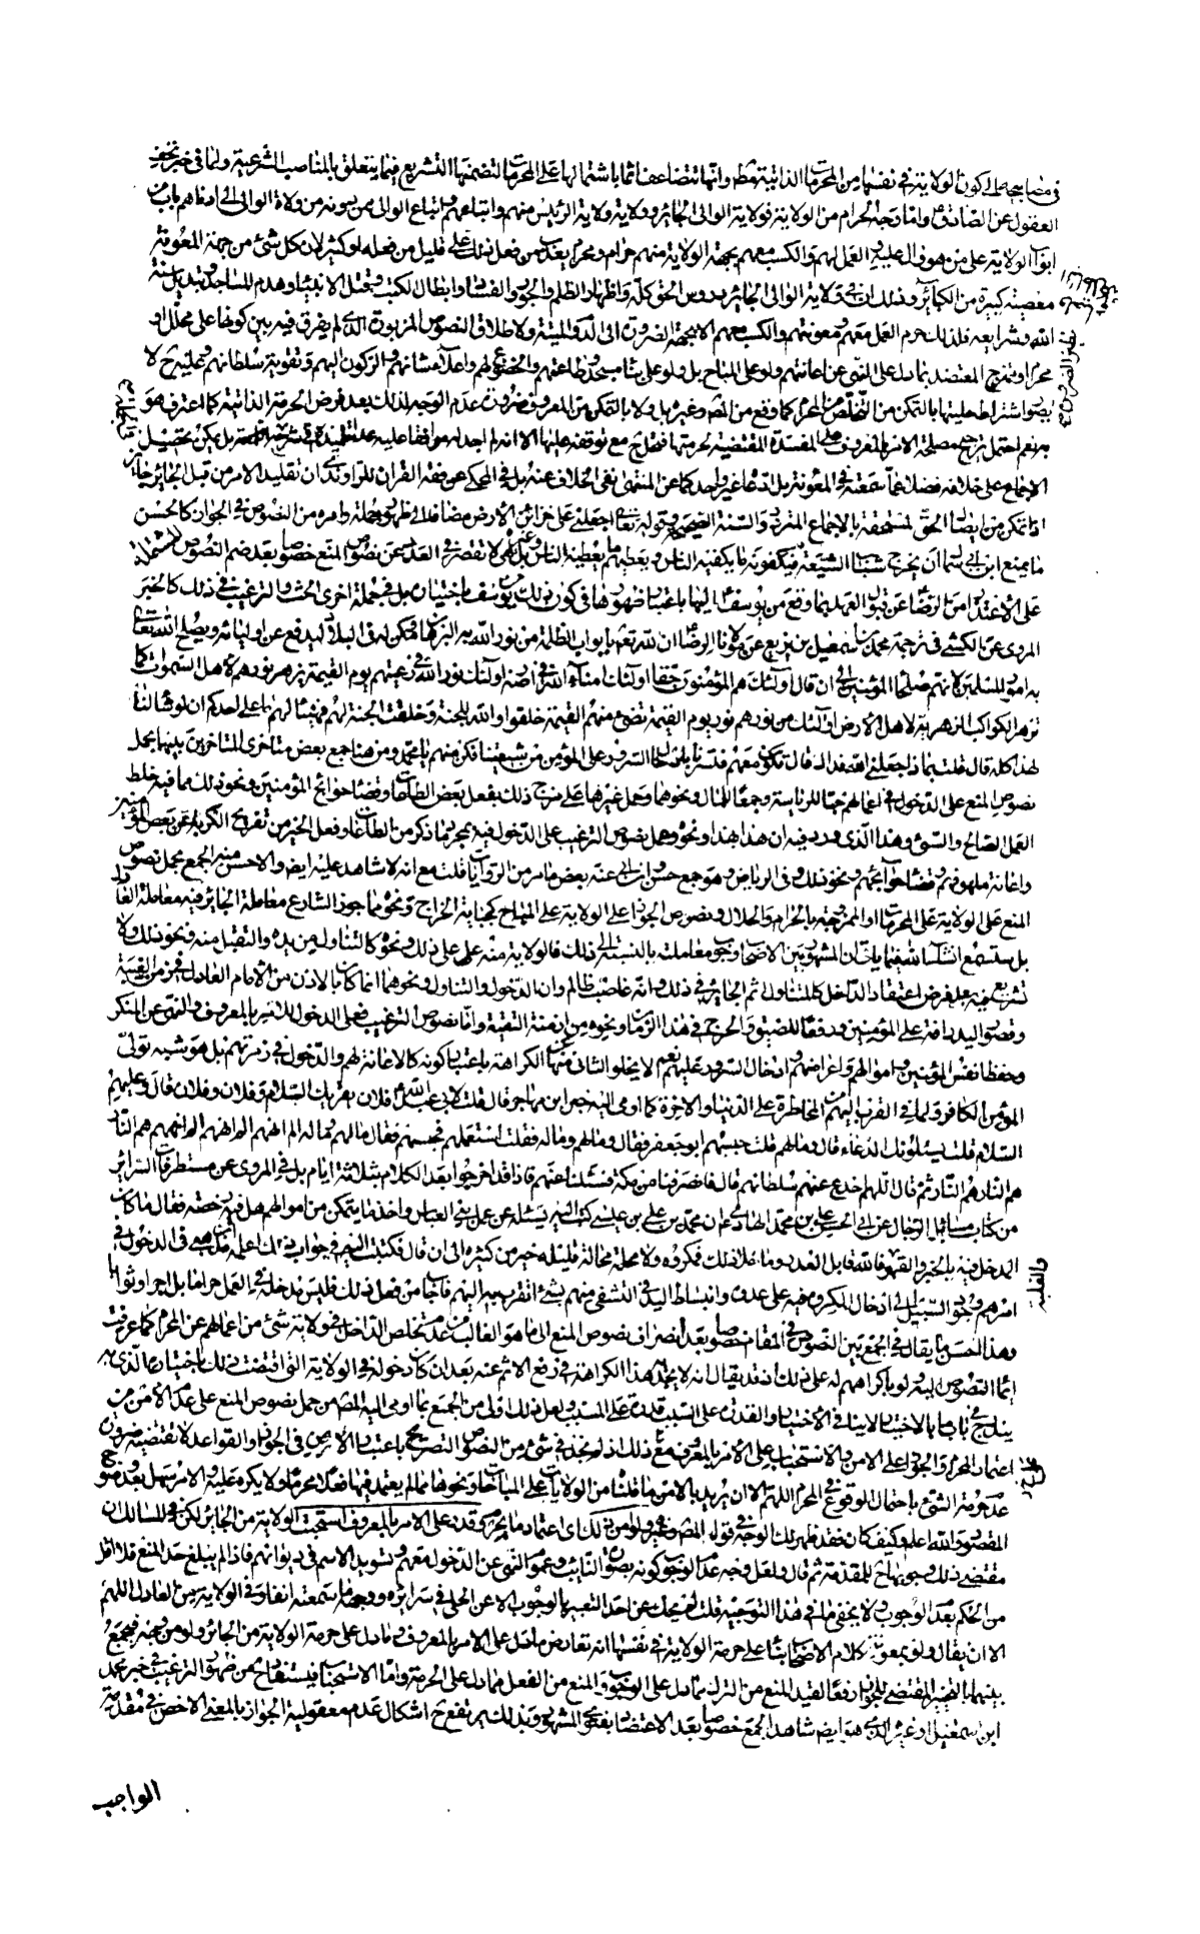 في مصابيحه إلى كون الولاية في نفسها من المحرمات الذاتية مط وانها تتضاعف اثما باشتمالها على المحرمات لتضمنها التشريع فيما يتعلق بالمناصب الشرعية ولما في خبر تحف
العقول عن الصادق ع واما وجه الحرام من الولاية فولاية الوالي الجائر وولاية ولاية الرئيس منهم واتباعهم واتباع الوالي من دونه من ولاة الولاة الى ادناهم بابا من
ابواب الولاية على من هو وال عليه والعمل لهم والكسب معهم بجهة الولاية منهم حرام ومحرم يعذب من فعل ذلك على قليل من فعله او كثير لان كل شئ من جهة المعونة
معصية كبيرة من الكبائر وذلك ان في ولاية الوالي الجائر دروس الحق كله واظهار الظلم والجور والفساد وابطال الكتب وقتل الانبياء وهدم المساجد وتبديل سنة
الله وشرايعه فلذلك حرم العمل معهم ومعونتهم والكسب معهم الا بجهة الضرورة الى الدم والميتة ولاطلاق النصوص المزبورة الذي لم يفرق فيه بين كونها على محلل او
محرم او ممتزج المعتضد بما دل على النهي عن اعانتهم ولو على المباح بل ولو على بناء مسجد وطاعتهم والخضوع لهم واعلاء شانهم والركون اليهم وتقوية سلطانهم وعليه ح لا
يتجه اشتراط حليتها بالتمكن من التخلص من الحرام كما وقع من المصنف وغيره بل ولا بالتمكن من المعروف ضرورة عدم الوجه لذلك بعد فرض الحرمة الذاتية كما اعترف هو
به نعم احتمل ترجيح مصلحة الامر بالمعروف على المفسدة المقتضية لحرمتها فتصلح مع توقفه عليها الا انه لم اجد له موافقا عليه بل يمكن تحصيل
الاجماع على خلافه فضلا عما سمعته في المعونة بل ادعاه غير واحد كما عن المنتهى نفي الخلاف عنه بل في المحكي عن فقه القران للراوندي ان تقليد الامر من قبل الجائر جائز
اذا تمكن من ايصال الحق لمستحقه بالاجماع المتردد والسنة الصحيحة وقوله تعالى اجعلني على خزائن الارض مضافا الى ظهور جملة وافرة من النصوص في الجواز كالحسن
ما يمنع ابن ابي سماك ان يخرج شباب الشيعة فيكفونه ما يكفيه الناس ويعطيهم ما يعطيه الناس وغيره بل هي لا تقصر في العدد عن نصوص المنع خصوصا بعد ضم النصوص المشتملة
على الاعتذار من الرضا ع عن قبول العهد بما وقع من يوسف ع اليها باعتبار ظهورها في كون ذلك من يوسف باختيار بل في جملة اخرى الحث والترغيب في ذلك كالخبر
المروي عن الكشي في ترجمة محمد بن اسمعيل بن بزيع عن مولانا الرضا ع ان لله تعالى بابواب الظلمة من نور الله به البرهان ومكن له في البلاد ليدفع عن اوليائه ويصلح الله تعالى
به امور المسلمين لانهم صلحاء المؤمنين الى ان قال اولئك هم المؤمنون حقا اولئك امناء الله في ارضه اولئك نور الله في رعيتهم يوم القيمة يزهر نورهم لاهل السموات كما
تزهر الكواكب الزهرية لاهل الارض اولئك من نورهم نور يوم القيمة تضئ منهم القيمة خلقوا والله للجنة وخلقت الجنة لهم فهنيئا لهم ما على احدكم ان لو شاء لنال
هذا كله قال قلت بماذا جعلني الله فداك قال تكون معهم فتسرنا بادخال السرور على المؤمنين من شيعتنا فكن منهم يا محمد ومن هنا جمع بعض متاخري المتاخرين بينها بحمل
نصوص المنع على الدخول في اعمالهم حبا للرياسة وجمعا للمال ونحوها وحمل غيرها على مزج ذلك بفعل بعض الطاعات وقضاء حوائج المؤمنين ونحو ذلك مما فيه خلط
العمل الصالح والسئ وهذا الذي ورد فيه ان هذا بهذا ونحوه وحمل نصوص الترغيب على الدخول فيه بمجرد ما ذكر من الطاعات وفعل الخير من تفريج الكربة عن بعض المؤمنين
واغاثة ملهوفهم وقضاء حوائجهم ونحو ذلك وفي الرياض وهو جمع حسن وان ابى عنه بعض ما مر من الروايات قلت مع انه لا شاهد عليه ايض والاحسن منه الجمع بحمل نصوص
المنع على الولاية على المحرمات او الممزوجة بالحرام والحلال ونصوص الجواز على الولاية على المباح كجباية الخراج ونحوه مما جوز الشارع معاملة الجائر فيه معاملة العادل
بل ستسمع انشاء الله فيما ياتي ان المشهور بين الاصحاب وجوب معاملته بالنسبة الى ذلك فالولاية منه على ذلك ونحوه كالتناول من يده والتقبل منه ونحو ذلك ولا
تشريع فيه بعد فرض اعتقاد الداخل كالمتناول اثم الجائر في ذلك وانه غاصب ظالم وان الدخول والتناول ونحوهما انما كان بالاذن من الامام العادل في زمن الغيبة
وقصور اليد رافة على المؤمنين ودفعا للضيق والحرج في هذا الزمان ونحوه من ازمنة التقية واما نصوص الترغيب فعلى الدخول للامر بالمعروف والنهي عن المنكر
وحفظ انفس المؤمنين واموالهم واعراضهم وادخال السرور عليهم نعم لا يخلو الثاني منها من الكراهة باعتبار كونه كالاعانة لهم والدخول في زمرتهم بل هو شبه تولي
المؤمن الكافر ولما في القرب اليهم من المخاطرة على الدنيا والاخرة كما اومى اليه خبر ابن مهاجر قال قلت لابي عبد الله ع فلان يقرئك السلام وفلان وفلان قال وعليهم
السلام قلت يسئلونك الدعاء قال وما لهم قلت حبسهم ابو جعفر فقال وما لهم وماله فقلت استعملهم فحبسهم فقال ما لهم وماله الم انههم الم انههم الم انههم هم النار
هم النار هم النار ثم قال اللهم اخدع عنهم سلطانهم قال فانصرفنا من مكة فسئلنا عنهم فاذا قد اخرجوا بعد الكلام بثلاثة ايام بل في المروي عن مستطرفات السرائر
من كتاب مسائل الرجال عن ابي الحسن علي بن محمد الهادي ع ان محمد بن علي بن عيسى كتب اليه يسئله عن عمل بني العباس واخذ ما يتمكن من اموالهم هل فيه رخصة فقال ما كان
المدخل فيه بالجبر والقهر فالله قابل العذر وما خلا ذلك فمكروه ولا محالة قليله خير من كثيره الى ان قال فكتبت اليه في جواب ذلك اعلمه ان مذهبي في الدخول في
امرهم وجود السبيل الى ادخال المكروه على عدوه وانبساط اليد في التشفي منهم بشئ اتقرب به اليهم فاجاب من فعل ذلك فليس مدخله في العمل حراما بل اجرا وثوابا
وهذا احسن ما يقال في الجمع بين النصوص في المقام خصوصا بعد انصراف نصوص المنع الى ما هو الغالب من عدم تخلص الداخل في ولاية شئ من اعمالهم عن الحرام كما عرفت
ايماء النصوص اليه ولو باكراههم له على ذلك اذ قد يقال انه لا يجدي هذا الاكراه في رفع الاثم عنه بعد ان كان دخوله في الولاية التي اقتضت ذلك باختياره الذي به
يندرج في باب ما بالاختيار لا ينافي الاختيار والقدرة على السبب قدرة على المسبب ولعل ذلك اولى من الجمع بما اومى اليه المصنف من حمل نصوص المنع على عدم الامن من
اعتماد المحرم والجواز على الامن والاستحباب على الامر بالمعروف مع ذلك اذ لم نجد في شئ من النصوص التصريح باعتبار الامن في الجواز والقواعد لا تقتضيه ضرورة
عدم حرمة الشئ باحتمال الوقوع في المحرم اللهم الا ان يريد بالامن ما قلنا من الولايات على المباحات ونحوها مما لم يعتمد فيها فعلا محرما ولا يكره عليه والامر سهل بعد وضوح
المقصود والله اعلم وكيف كان فقد ظهر لك الوجه في قول المصنف وغيره ولو امن ذلك اي اعتماد ما يحرم وقدر على الامر بالمعروف استحبت الولاية من الجائر لكن في المسالك ان
مقتضى ذلك وجوبها ح للمقدمة ثم قال ولعل وجه عدم الوجوب كونه بصورة النائب وعموم النهي عن الدخول معهم وتسويد الاسم في ديوانهم فاذا لم يبلغ حد المنع فلا اقل
من الحكم بعدم الوجوب ولا يخفى ما في هذا التوجيه قلت لم يحك عن احد التعبير بالوجوب الا عن الحلي في سرائره ووجهه ما سمعته انفا وفي الولاية من العادل اللهم
الا ان يقال ولو بمعونة كلام الاصحاب بناء على حرمة الولاية في نفسها انه تعارض ما دل على الامر بالمعروف وما دل على حرمة الولاية من الجائر ولو من وجه فيجمع
بينهما بالتخيير المقتضي للجواز رفعا لقيد المنع من الترك مما دل على الوجوب والمنع من الفعل مما دل على الحرمة واما الاستحباب فيستفاد ح من ظهور الترغيب في خبر محمد
ابن اسمعيل وغيره الذي هو ايض شاهد الجمع خصوصا بعد الاعتضاد بفتوى المشهور وبذلك يرتفع ح اشكال عدم معقولية الجواز بالمعنى الاخص في مقدمة
الواجب